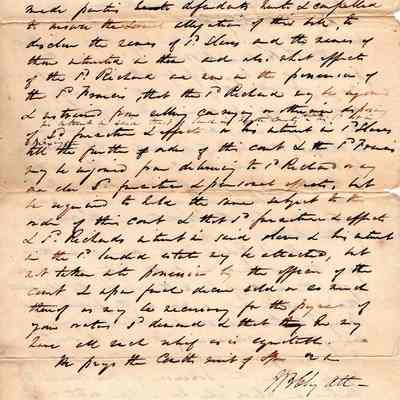 made parties hereto defendants & compelled
to answer the allegations of this bill, to
disclose the names of sd Slaves and the names of
those interested in them and also what effects
of the sd Richard are now in the possession of
the sd Francis, that the sd Richard may be enjoined
& restrained from selling conveying or otherwise disposing
of sd furniture & effects or his interest in sd Slaves
till the further order of this court & the sd Francis
may be enjoined from delivering to sd Richard or any
other sd furniture & personal effects, but
be required to hold the same subject to the
order of this court & that sd furniture & effects
& sd Richards interest in said slaves & his interest
in the sd landed estate may be attached, but
not taken into possession by the officer of the
court & upon final decree sold or so much
thereof as may be necessary for the payment of
your orators sd demand & that he may
have all such relief as is equitable.
He prays the Courts writ of Spa &c
Att